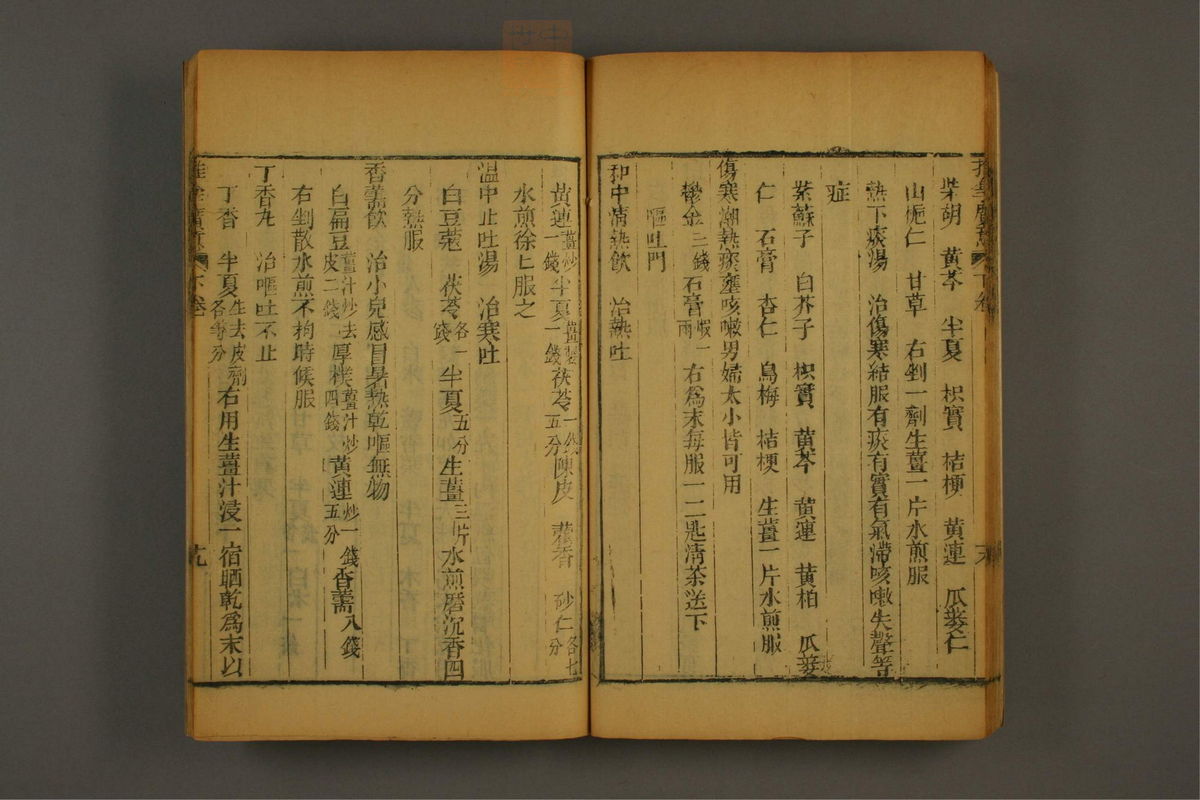 推拿廣意 下卷
柴胡 黃芩 半夏 枳實 桔梗 黃連 瓜蔞仁
山梔仁 甘草 右剉一劑生薑一片水煎服
熱下痰湯 治傷寒結服有痰有實有氣滯咳嗽失聲等
症
紫蘇子 白芥子 枳實 黃芩 黃連 黃柏 瓜蔞
仁 石膏 杏仁 烏梅 桔梗 生薑一片水煎服
傷寒潮熱痰壅咳嗽男婦大小皆可用
鬱金三錢石膏煆一兩 右為末每服一二匙淸茶送下
嘔吐門
和中淸熱飲 治熱吐
黃連薑炒一錢半夏薑製一錢茯苓一錢五分陳皮 藿香 砂仁各七分
水煎徐上服之
溫中止吐湯 治寒吐
白豆蔻 茯苓各一錢 半夏五分生薑三片水煎磨沉香四
分熱服
香薷飲 治小兒感冒暑熱乾嘔無物
白扁豆薑汁炒去皮二錢厚樸薑汁炒四錢黃連炒一錢五分 香薷八錢
右剉散水煎不拘時候服
丁香丸 治嘔吐不止
丁香 半夏生去皮劑各等分右用生薑汁浸一宿晒乾為末以
推拿廣意 下卷 九